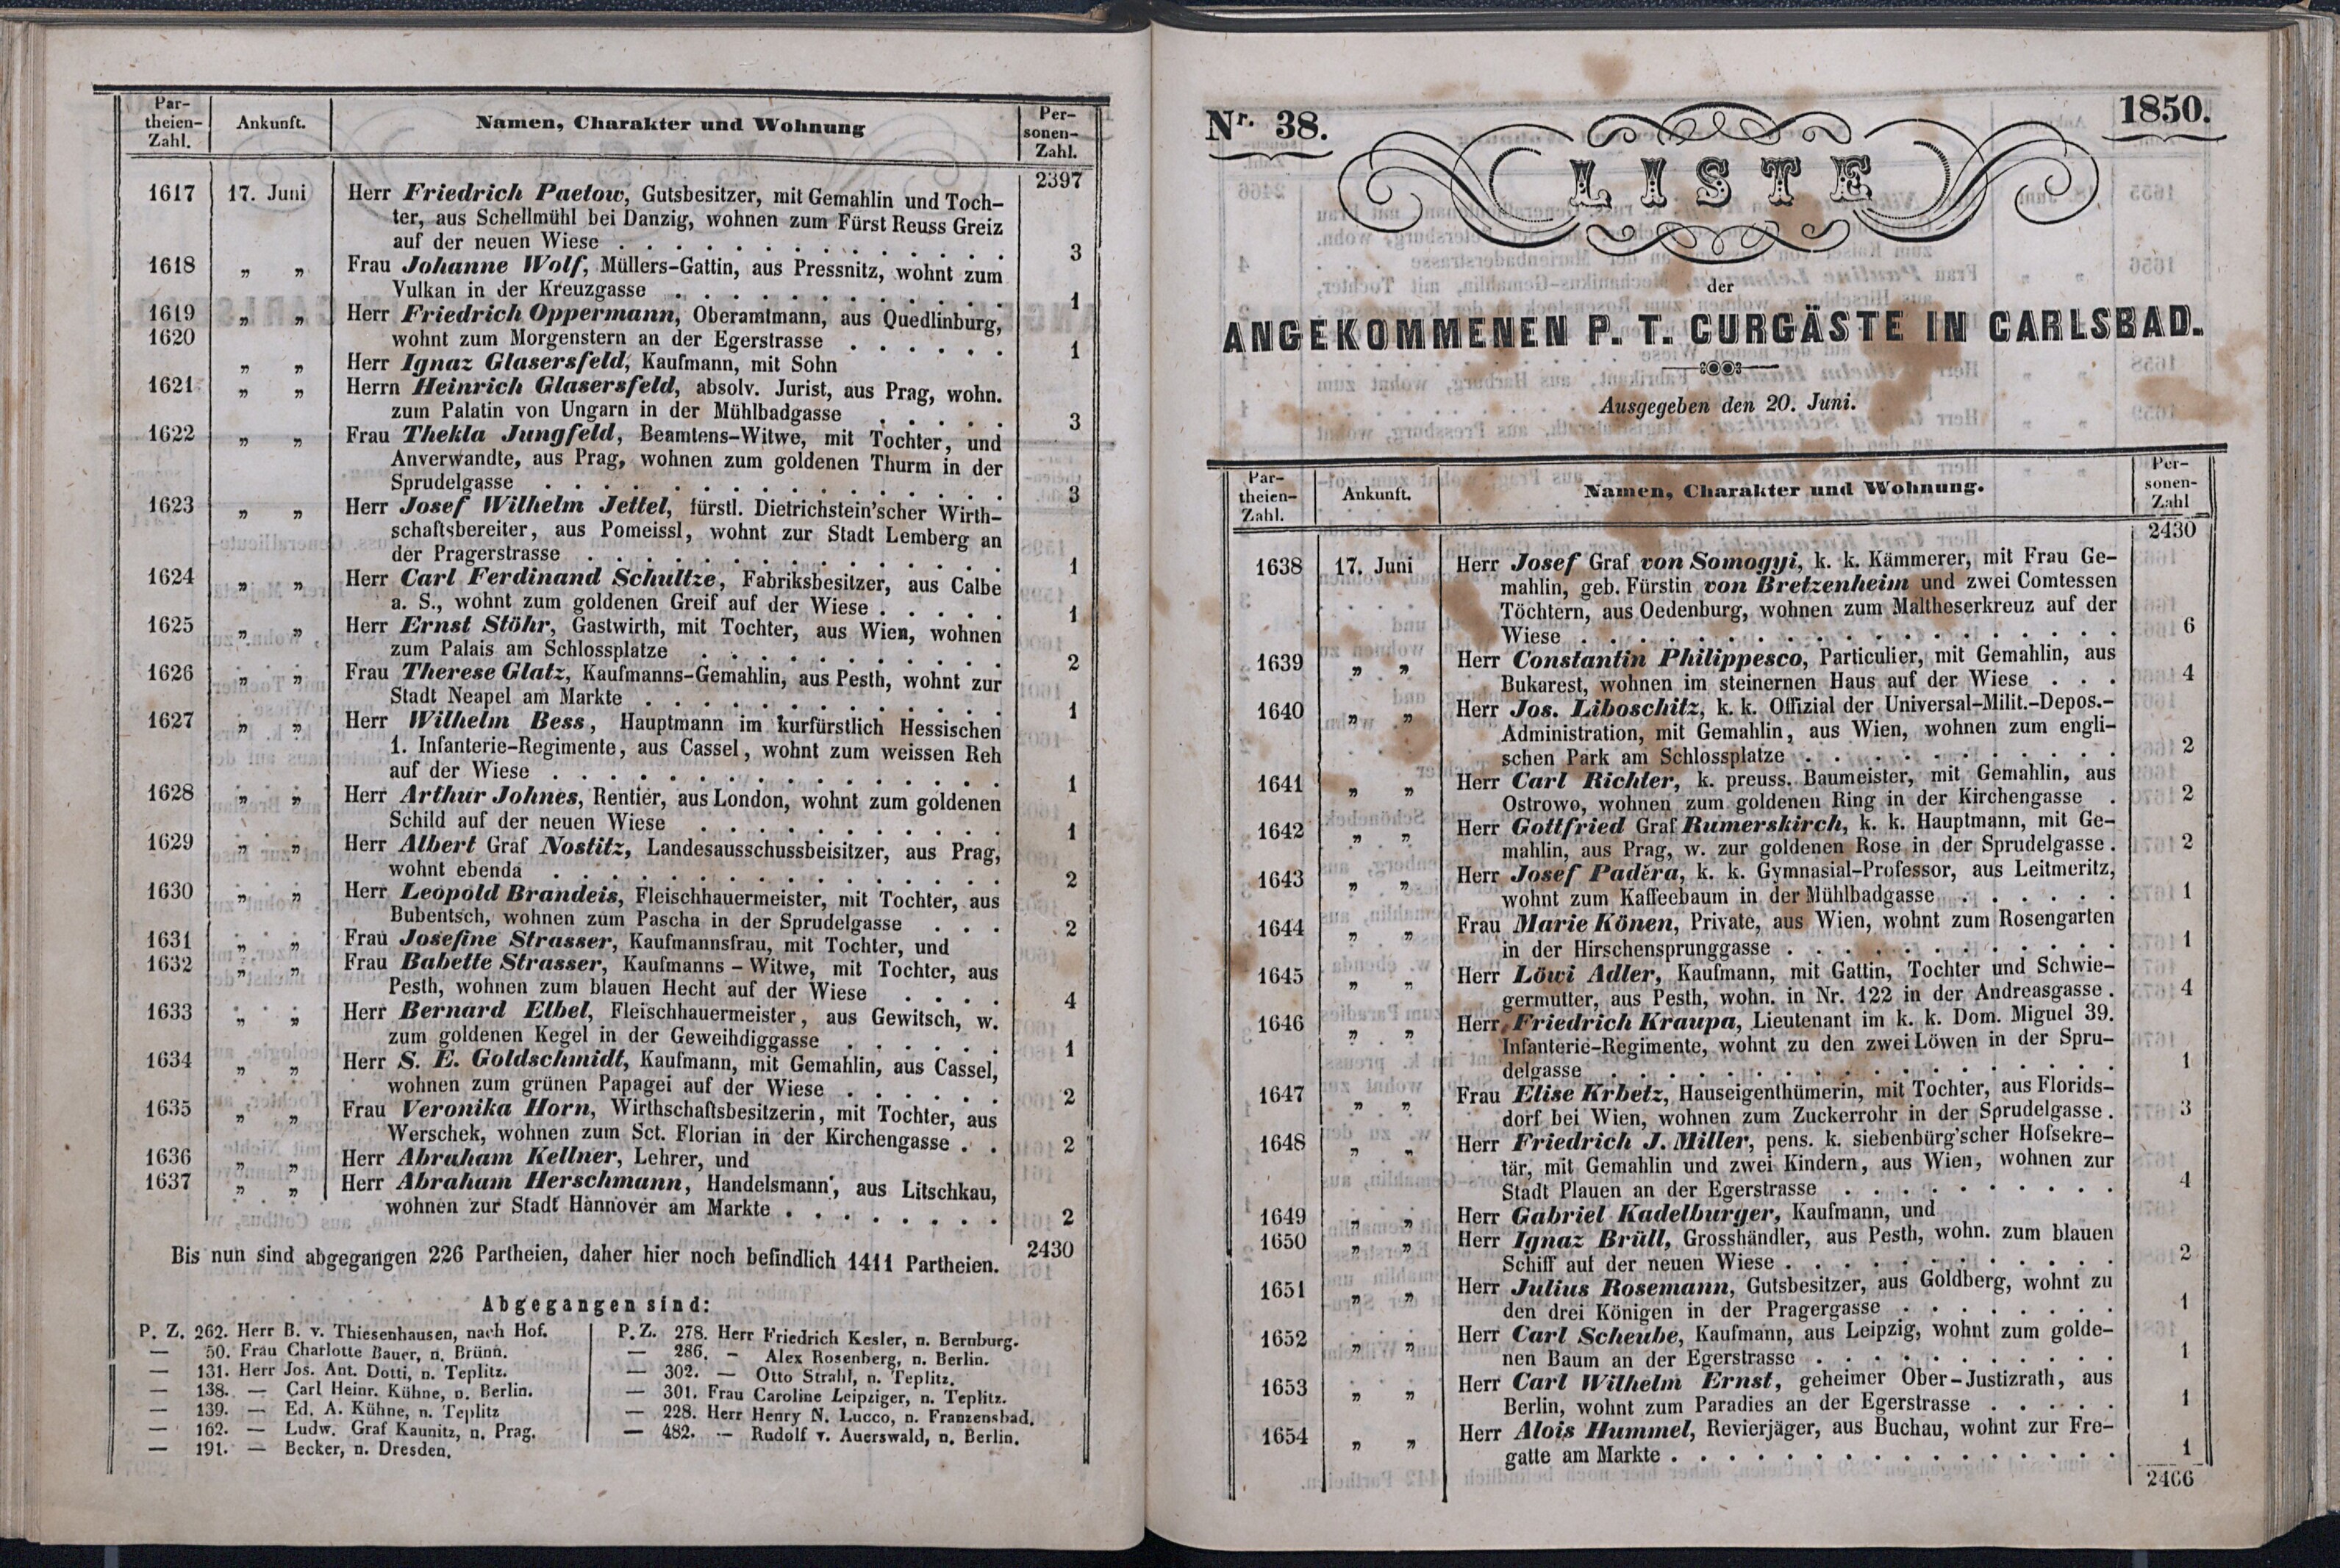 Par-
theien-
Zahl.
Ankunft.
Namen, Charakter und Wohnung
Per-
sonen-
Zahl.
2397
1617 17. Juni Herr Friedrich Paetow, Gutsbesitzer, mit Gemahlin und Toch-
ter, aus Schellmühl bei Danzig, wohnen zum Fürst Reuss Greiz
auf der neuen Wiese . . . . . . . . . . . . . 3
1618 „ „ Frau Johanne Wolf, Müllers-Gattin, aus Pressnitz, wohnt zum
Vulkan in der Kreuzgasse . . . . . . . . . . . 1
1619 „ „ Herr Friedrich Oppermann, Oberamtmann, aus Quedlinburg,
wohnt zum Morgenstern an der Egerstrasse . . . . . . 1
1620 „ „ Herr Ignaz Glasersfeld, Kaufmann, mit Sohn
1621 „ „ Herrn Heinrich Glasersfeld, absolv. Jurist, aus Prag, wohn.
zum Palatin von Ungarn in der Mühlbadgasse . . . . . 3
1622 „ „ Frau Thekla Jungfeld, Beamtens-Witwe, mit Tochter, und
Anverwandte, aus Prag, wohnen zum goldenen Thurm in der
Sprudelgasse . . . . . . . . . . . . . . . 3
1623 „ „ Herr Josef Wilhelm Jettel, fürstl. Dietrichstein'scher Wirth-
schaftsbereiter, aus Pomeissl, wohnt zur Stadt Lemberg an
der Pragerstrasse . . . . . . . . . . . . . . 1
1624 „ „ Herr Carl Ferdinand Schultze, Fabriksbesitzer, aus Calbe
a. S., wohnt zum goldenen Greif auf der Wiese . . . . . 1
1625 „ „ Herr Ernst Stöhr, Gastwirth, mit Tochter, aus Wien, wohnen
zum Palais am Schlossplatze . . . . . . . . . . 2
1626 „ „ Frau Therese Glatz, Kaufmanns-Gemahlin, aus Pesth, wohnt zur
Stadt Neapel am Markte . . . . . . . . . . . . 1
1627 „ „ Herr Wilhelm Bess, Hauptmann im kurfürstlich Hessischen
1. Infanterie-Regimente, aus Cassel, wohnt zum weissen Reh
auf der Wiese . . . . . . . . . . . . . . . 1
1628 „ „ Herr Arthur Johnes, Rentier, aus London, wohnt zum goldenen
Schild auf der neuen Wiese . . . . . . . . . . 1
1629 „ „ Herr Albert Graf Nostitz, Landesausschussbeisitzer, aus Prag,
wohnt ebenda . . . . . . . . . . . . . . . 2
1630 „ „ Herr Leopold Brandeis, Fleischhauermeister, mit Tochter, aus
Bubentsch, wohnen zum Pascha in der Sprudelgasse . . . 2
1631 „ „ Frau Josefine Strasser, Kaufmannsfrau, mit Tochter, und
1632 „ „ Frau Babette Strasser, Kaufmanns-Witwe, mit Tochter, aus
Pesth, wohnen zum blauen Hecht auf der Wiese . . . . 4
1633 „ „ Herr Bernard Elbel, Fleischhauermeister, aus Gewitsch, w.
zum goldenen Kegel in der Geweihdiggasse . . . . . . 1
1634 „ „ Herr S. E. Goldschmidt, Kaufmann, mit Gemahlin, aus Cassel,
wohnen zum grünen Papagei auf der Wiese . . . . . . 2
1635 „ „ Frau Veronika Horn, Wirthschaftsbesitzerin, mit Tochter, aus
Werschek, wohnen zum Sct. Florian in der Kirchengasse . . 2
1636 „ „ Herr Abraham Kellner, Lehrer, und
1637 „ „ Herr Abraham Herschmann, Handelsmann, aus Litschkau,
wohnen zur Stadt Hannover am Markte . . . . . . . . 2
Bis nun sind abgegangen 226 Partheien, daher hier noch befindlich 1411 Partheien. 2430
Abgegangen sind:
P. Z. 262. Herr B. v. Thiesenhausen, nach Hof.
— 50. Frau Charlotte Bauer, n. Brünn.
— 131. Herr Jos. Ant. Dotti, n. Teplitz.
— 138. — Carl Heinr. Kühne, n. Berlin.
— 139. — Ed. A. Kühne, n. Teplitz
— 162. — Ludw. Graf Kaunitz, n. Prag.
— 191. — Becker, n. Dresden.
P. Z. 278. Herr Friedrich Kesler, n. Bernburg.
— 286. — Alex Rosenberg, n. Berlin.
— 302. — Otto Strahl, n. Teplitz.
— 301. Frau Caroline Leipziger, n. Teplitz.
— 228. Herr Henry N. Lucco, n. Franzensbad.
— 482. — Rudolf v. Auerswald, n. Berlin.
Nr. 38. 1850.
LISTE
der
ANGEKOMMENEN P. T. CURGÄSTE IN CARLSBAD.
Ausgegeben den 20. Juni.
Par-
theien-
Zahl.
Ankunft.
Namen, Charakter und Wohnung.
Per-
sonen-
Zahl
2430
1638 17. Juni Herr Josef Graf von Somogyi, k. k. Kämmerer, mit Frau Ge-
mahlin, geb. Fürstin von Bretzenheim und zwei Comtessen
Töchtern, aus Oedenburg, wohnen zum Maltheserkreuz auf der
Wiese . . . . . . . . . . . . . . . . . . 6
1639 „ „ Herr Constantin Philippesco, Particulier, mit Gemahlin, aus
Bukarest, wohnen im steinernen Haus auf der Wiese . . . 4
1640 „ „ Herr Jos. Liboschitz, k. k. Offizial der Universal-Milit.-Depos.-
Administration, mit Gemahlin, aus Wien, wohnen zum engli-
schen Park am Schlossplatze . . . . . . . . . . . 2
1641 „ „ Herr Carl Richter, k. preuss. Baumeister, mit Gemahlin, aus
Ostrowo, wohnen zum goldenen Ring in der Kirchengasse . 2
1642 „ „ Herr Gottfried Graf Rumerskirch, k. k. Hauptmann, mit Ge-
mahlin, aus Prag, w. zur goldenen Rose in der Sprudelgasse . 2
1643 „ „ Herr Josef Paděra, k. k. Gymnasial-Professor, aus Leitmeritz,
wohnt zum Kaffeebaum in der Mühlbadgasse . . . . . . 1
1644 „ „ Frau Marie Könen, Private, aus Wien, wohnt zum Rosengarten
in der Hirschensprunggasse . . . . . . . . . . . 1
1645 „ „ Herr Löwi Adler, Kaufmann, mit Gattin, Tochter und Schwie-
germutter, aus Pesth, wohn. in Nr. 122 in der Andreasgasse . 4
1646 „ „ Herr Friedrich Kraupa, Lieutenant im k. k. Dom. Miguel 39.
Infanterie-Regimente, wohnt zu den zwei Löwen in der Spru-
delgasse . . . . . . . . . . . . . . . . . 1
1647 „ „ Frau Elise Krbetz, Hauseigenthümerin, mit Tochter, aus Florids-
dorf bei Wien, wohnen zum Zuckerrohr in der Sprudelgasse . 3
1648 „ „ Herr Friedrich J. Miller, pens. k. siebenbürg'scher Hofsekre-
tär, mit Gemahlin und zwei Kindern, aus Wien, wohnen zur
Stadt Plauen an der Egerstrasse . . . . . . . . . . 4
1649 „ „ Herr Gabriel Kadelburger, Kaufmann, und
1650 „ „ Herr Ignaz Brüll, Grosshändler, aus Pesth, wohn. zum blauen
Schiff auf der neuen Wiese . . . . . . . . . . . . 2
1651 „ „ Herr Julius Rosemann, Gutsbesitzer, aus Goldberg, wohnt zu
den drei Königen in der Pragergasse . . . . . . . . 1
1652 „ „ Herr Carl Scheube, Kaufmann, aus Leipzig, wohnt zum golde-
nen Baum an der Egerstrasse . . . . . . . . . . . 1
1653 „ „ Herr Carl Wilhelm Ernst, geheimer Ober-Justizrath, aus
Berlin, wohnt zum Paradies an der Egerstrasse . . . . . 1
1654 „ „ Herr Alois Hummel, Revierjäger, aus Buchau, wohnt zur Fre-
gatte am Markte . . . . . . . . . . . . . . . . 1
2466